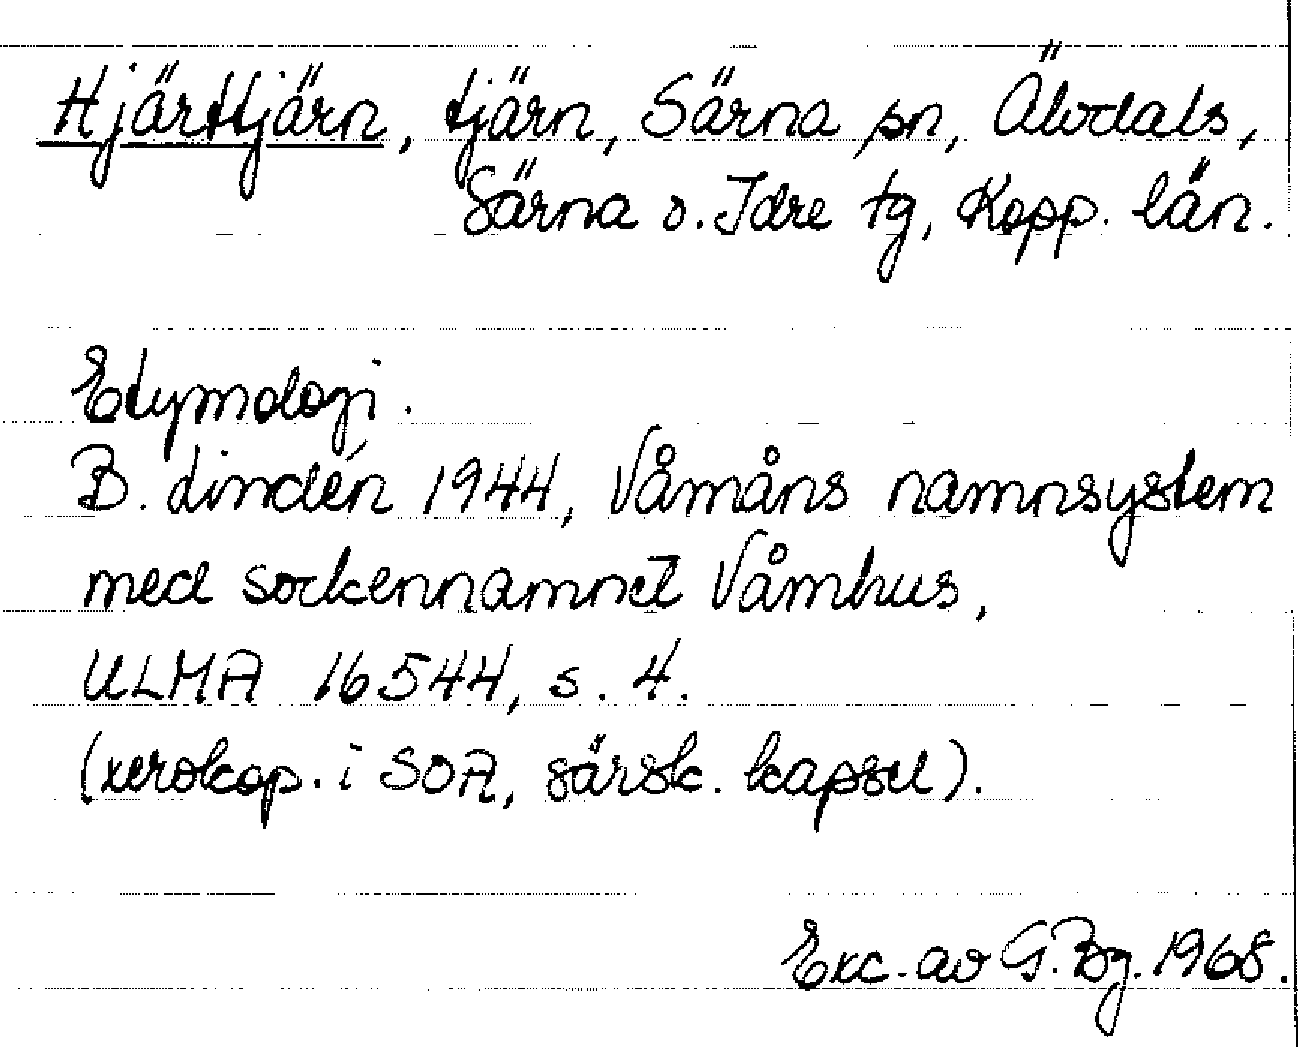 Hjärttjärn, tjärn, Särna sn, Älvdals,
Särna o. Idre tg, Kopp. län.
Etymologi.
B. Lindén 1944, Våmåns namnsystem
med sockennamnet Våmhus,
ULMA 16544, s. 4.
(xerokop. i SOA, särsk. kapsel).
Exc. av G. Bg. 1968.